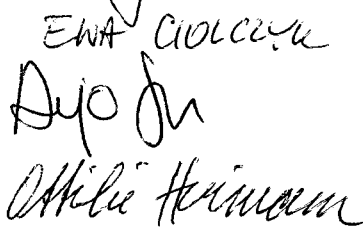 EWA CIOLCZYK
Ayo
Ottilie Heimann